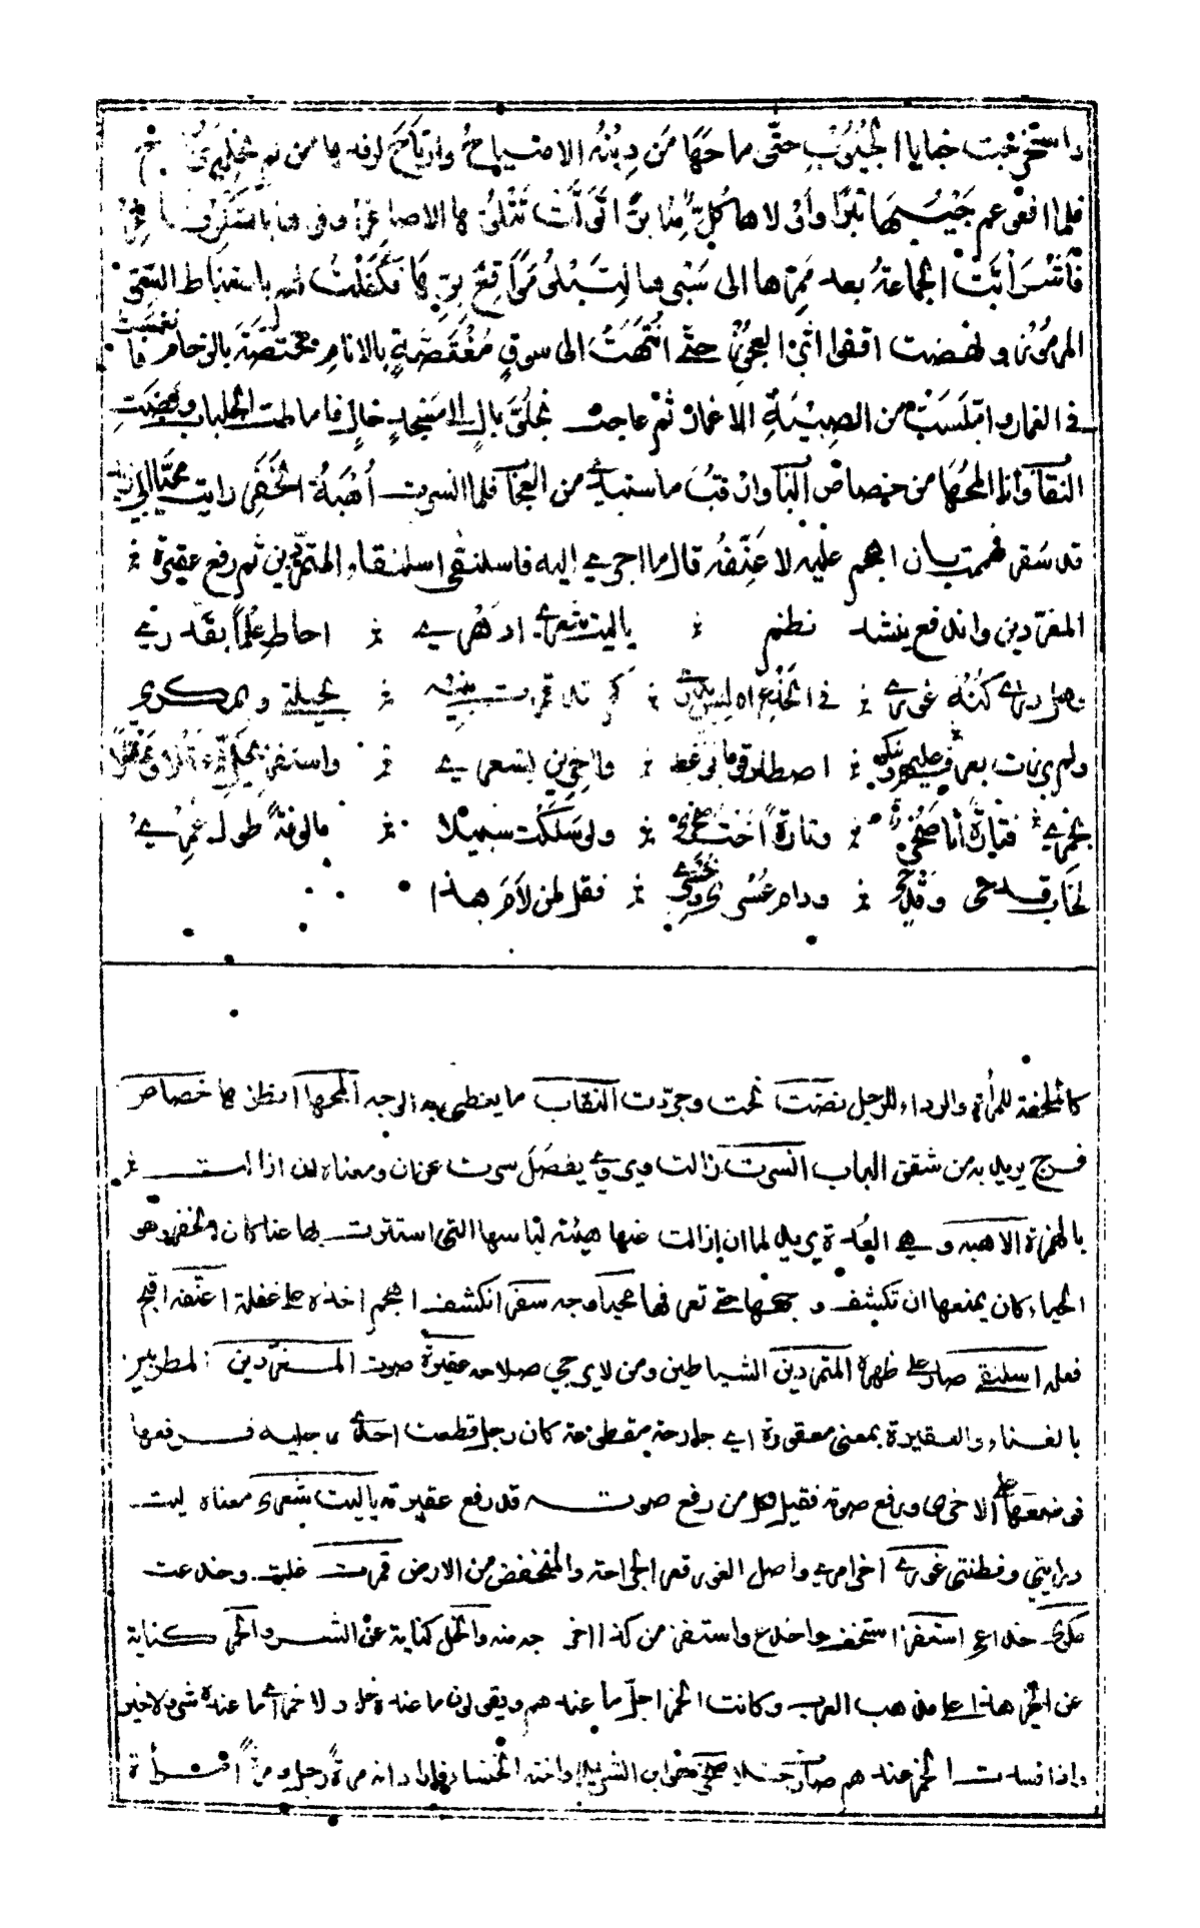 واستخرجت خبايا الجيوب حتى ماحها من دينه الامتياح وارتاح لرفدها من لم نخله يرتاح
فلما افعوعم جيبها تبرا وأولاها كل منا برا تولت تتلو ها الاصاغر وفوها بالشكر فاغر
فاشرأبت الجماعة بعد ممرها الى سبرها لتبلو مواقع برها فتكفلت لهم باستنباط السر
المرموز ونهضت اقفوا اثر العجوز حتى انتهت الى سوق مغتصة بالانام مختصة بالزحام فانغمست
في الغمار واملست من الصبية الاغمار ثم عاجت بخلو بال الى مسجد خال فاماطت الجلباب ونضت
النقاب وأنا المحها من خصاص الباب وارقب ما ستبدي من العجاب فلما انسرت أهبة الخفر رايت محيا ابي زيد
قد سفر فهممت بان اهجم عليه لاعنفه على ما اجرى اليه فاسلنقى اسلنقاء المتمردين ثم رفع عقيرة
المغردين واندفع ينشد نظم ياليت شعري ادهري احاط علما بقدري
وهل درى كنه غوري في الخدع ام ليس يدري كم قد قمرت بنيه بحيلتي وبمكري
ولم برزت بعرف عليهم ونكر اصطاد قوما بوعظ واخرين بشعري واستفز بخل عقلا وعقلا
بخمر فتارة أنا صخر وتارة أخت صخر ولو سلكت سبيلا مالوفة طول عمري
لخاب قدحي وقدحي ودام عسري وخسري فقل لمن لام هذا
كالملحفة للمرأة والرداء للرجل نضت نحت وجردت النقاب ما يغطى به الوجه المحها انظرها خصاص
فرج يريد به من شقق الباب انسرت زالت
بالهمزة الاهبة وهي العدة يريد لما ان زالت عنها هيئة لباسها التي استترت بها عنا كان والخفر وهو
الحياء كان يمنعها ان تكشف وجهها حتى تعرفها محيا وجه سفر انكشف اهجم اخذه على غفلة اعنفه اقبح
فعله اسلنقى صار على ظهره المتمردين الشياطين ومن لا يرجى صلاحه عقيرة صوت المغردين المطربين
بالغناء والعقيرة بمعنى معقورة اي جارحة مقطوعة كان رجل قطعت احدى رجليه فرفعها
فوضعها على الاخرى ورفع صوته فقيل لكل من رفع صوت قد رفع عقيرته ياليت شعري معناه ليت
درايتي وفطنتي غوري اخر امري وأصل الغور قعر الجراحة والمنخفض من الارض قمرت غلبت وخدعت
مكري خداعي استفز استخف واخدع واستفز من كذا اخرجه منه والخل كناية عن الشر والخمر كناية
عن الخير هذا على مذهب العرب وكانت الخمر اجل ما عندهم ويقولون ما عنده خل ولا خمر أي ما عنده شر ولا خير
واذا فسدت الخمر عندهم صارت خلا صخر هو ابن الشريد واخته الخنساء